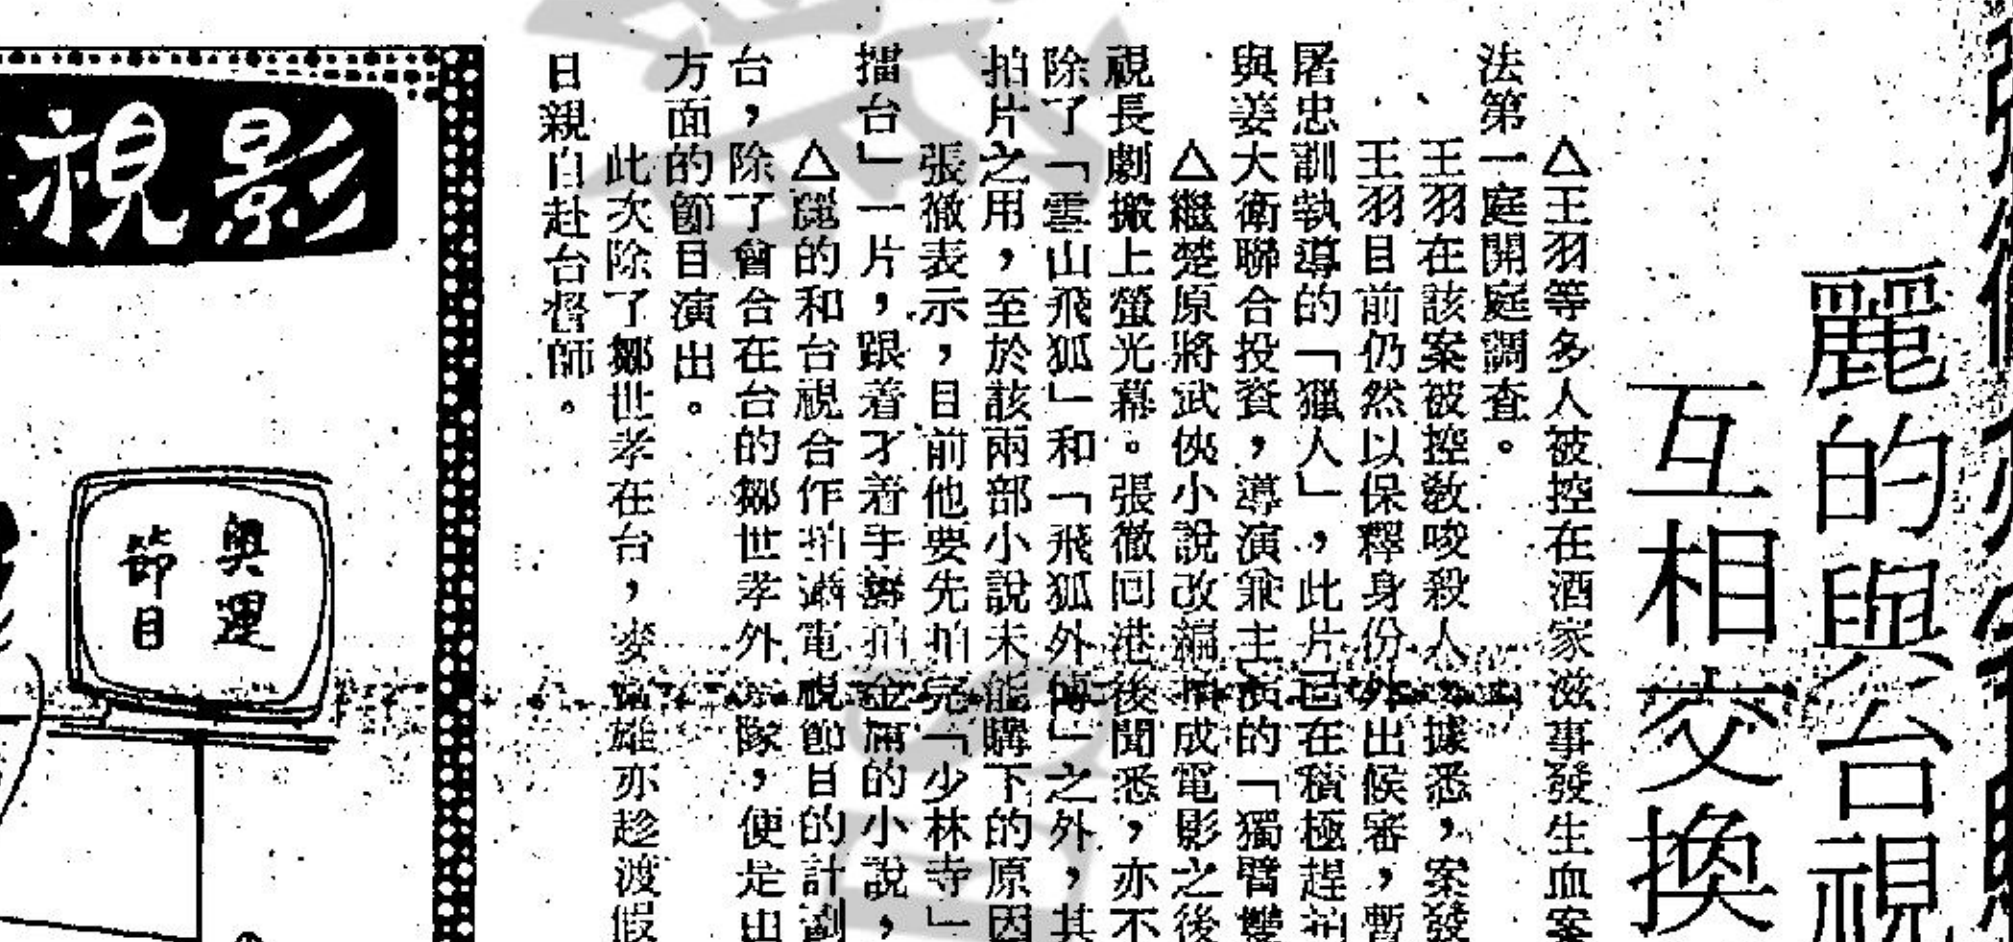 麗的與台視
互相交換
△王羽等多人被控在酒家滋事發生血案
法第一庭開庭調查。
王羽在該案被控敎唆殺人、據悉，案發
王羽目前仍然以保釋身份外出候審，暫
屠忠訓執導的「獵人」，此片已在積極趕拍
與姜大衛聯合投資，導演兼主演的「獨臂雙
△繼楚原將武俠小說改編拍成電影之後
視長劇搬上螢光幕。張徹回港後聞悉，亦不
除了「雪山飛狐」和「飛狐外傳」之外，其
拍片之用，至於該兩部小說未能購下的原因
張徹表示，目前他要先拍完「少林寺」
擂台」一片，跟着才着手籌拍金庸的小說，
△麗的和台視合作拍攝電視節目的計劃
台，除了曾合在台的鄒世孝外 隊，便是出
方面的節目演出。
此次除了鄒世孝在台，麥當雄亦趁渡假
日親自赴台督師。
影視
奧運
節目